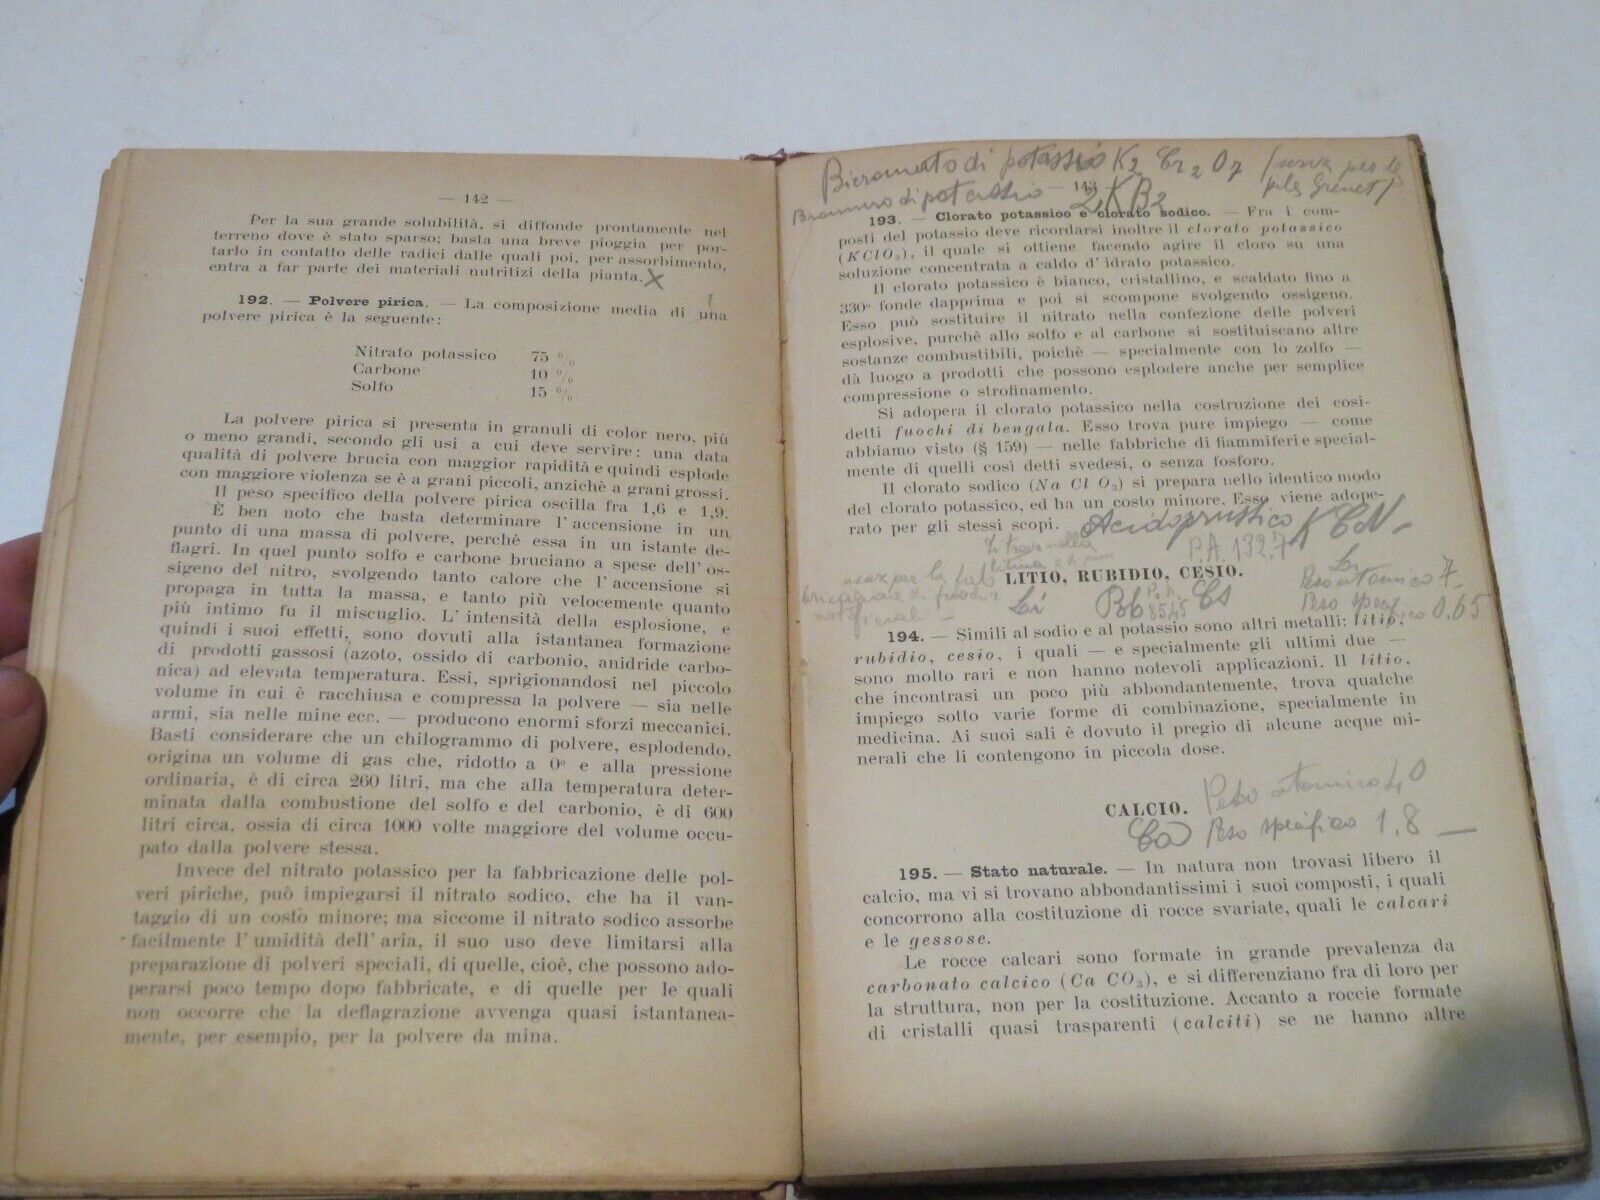 — 142 —
Per la sua grande solubilità, si diffonde prontamente nel
terreno dove è stato sparso; basta una breve pioggia per por-
tarlo in contatto delle radici dalle quali poi, per assorbimento,
entra a far parte dei materiali nutritizi della pianta. X
192. — Polvere pirica. — La composizione media di una
polvere pirica è la seguente:
Nitrato potassico 75 %
Carbone 10 %
Solfo 15 %
La polvere pirica si presenta in granuli di color nero, più
o meno grandi, secondo gli usi a cui deve servire: una data
qualità di polvere brucia con maggior rapidità e quindi esplode
con maggiore violenza se è a grani piccoli, anzichè a grani grossi.
Il peso specifico della polvere pirica oscilla fra 1,6 e 1,9.
È ben noto che basta determinare l'accensione in un
punto di una massa di polvere, perchè essa in un istante de-
flagri. In quel punto solfo e carbone bruciano a spese dell'os-
sigeno del nitro, svolgendo tanto calore che l'accensione si
propaga in tutta la massa, e tanto più velocemente quanto
più intimo fu il miscuglio. L'intensità della esplosione, e
quindi i suoi effetti, sono dovuti alla istantanea formazione
di prodotti gassosi (azoto, ossido di carbonio, anidride carbo-
nica) ad elevata temperatura. Essi, sprigionandosi nel piccolo
volume in cui è racchiusa e compressa la polvere — sia nelle
armi, sia nelle mine ecc. — producono enormi sforzi meccanici.
Basti considerare che un chilogrammo di polvere, esplodendo,
origina un volume di gas che, ridotto a 0° e alla pressione
ordinaria, è di circa 260 litri, ma che alla temperatura deter-
minata dalla combustione del solfo e del carbonio, è di 600
litri circa, ossia di circa 1000 volte maggiore del volume occu-
pato dalla polvere stessa.
Invece del nitrato potassico per la fabbricazione delle pol-
veri piriche, può impiegarsi il nitrato sodico, che ha il van-
taggio di un costo minore; ma siccome il nitrato sodico assorbe
facilmente l'umidità dell'aria, il suo uso deve limitarsi alla
preparazione di polveri speciali, di quelle, cioè, che possono ado-
perarsi poco tempo dopo fabbricate, e di quelle per le quali
non occorre che la deflagrazione avvenga quasi istantanea-
mente, per esempio, per la polvere da mina.
Bicromato di potassio K2 Cr2 O7
Bromuro di potassio 2KB2
— 143
193. — Clorato potassico e clorato sodico. — Fra i com-
posti del potassio deve ricordarsi inoltre il clorato potassico
(KClO3), il quale si ottiene facendo agire il cloro su una
soluzione concentrata a caldo d'idrato potassico.
Il clorato potassico è bianco, cristallino, e scaldato fino a
330° fonde dapprima e poi si scompone svolgendo ossigeno.
Esso può sostituire il nitrato nella confezione delle polveri
esplosive, purchè allo solfo e al carbone si sostituiscano altre
sostanze combustibili, poichè — specialmente con lo zolfo —
dà luogo a prodotti che possono esplodere anche per semplice
compressione o strofinamento.
Si adopera il clorato potassico nella costruzione dei così-
detti fuochi di bengala. Esso trova pure impiego — come
abbiamo visto (§ 159) — nelle fabbriche di fiammiferi e special-
mente di quelli così detti svedesi, o senza fosforo.
Il clorato sodico (Na Cl O3) si prepara nello identico modo
del clorato potassico, ed ha un costo minore. Esso viene adope-
rato per gli stessi scopi. Acido prussico K CN
P.A. 132.7
LITIO, RUBIDIO, CESIO.
Li Rb P.A. 85,45 Cs
Li
Peso atomico 7
Peso specifico 0.65
194. — Simili al sodio e al potassio sono altri metalli: litio,
rubidio, cesio, i quali — e specialmente gli ultimi due —
sono molto rari e non hanno notevoli applicazioni. Il litio,
che incontrasi un poco più abbondantemente, trova qualche
impiego sotto varie forme di combinazione, specialmente in
medicina. Ai suoi sali è dovuto il pregio di alcune acque mi-
nerali che li contengono in piccola dose.
CALCIO. Peso atomico 40
Ca Peso specifico 1.8 —
195. — Stato naturale. — In natura non trovasi libero il
calcio, ma vi si trovano abbondantissimi i suoi composti, i quali
concorrono alla costituzione di rocce svariate, quali le calcari
e le gessose.
Le rocce calcari sono formate in grande prevalenza da
carbonato calcico (Ca CO3), e si differenziano fra di loro per
la struttura, non per la costituzione. Accanto a roccie formate
di cristalli quasi trasparenti (calciti) se ne hanno altre